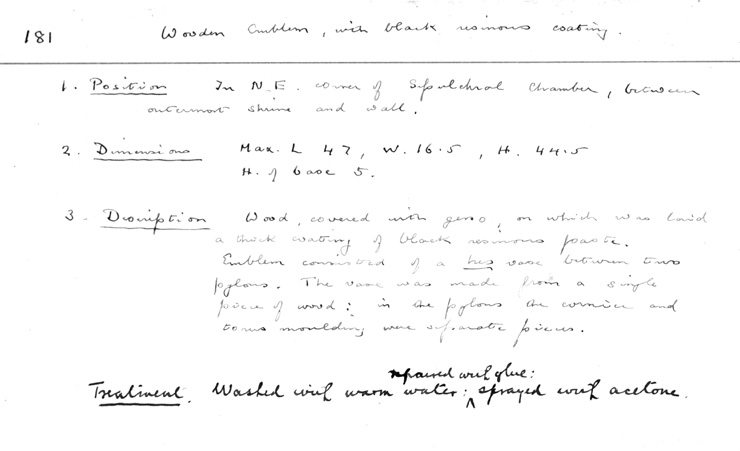 181 Wooden Emblem, with black resinous coating.
1. Position In N.E. corner of Sepulchral Chamber, between
outermost shrine and wall.
2. Dimensions Max. L 47, W. 16.5, H. 44.5
H. of base 5.
3. Description Wood, covered with gesso, on which was laid
a thick coating of black resinous paste.
Emblem consisted of a hes vase between two
pylons. The vase was made from a single
piece of wood: in the pylons the cornice and
torus moulding were separate pieces.
repaired with glue:
Treatment. Washed with warm water: ^ sprayed with acetone.